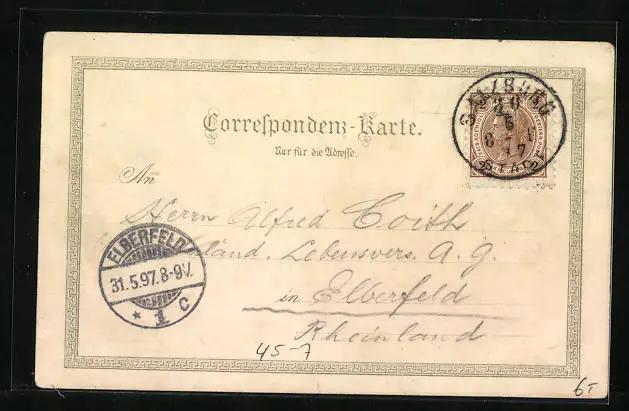 Correspondenz-Karte.
Nur für die Adresse.
SALZBURG
STADT
An
Herrn Alfred Coith
länd. Lebensvers. A. G.
in Elberfeld
Rheinland
ELBERFELD
31.5.97.8-9V.
* 1 c
45-7
6T